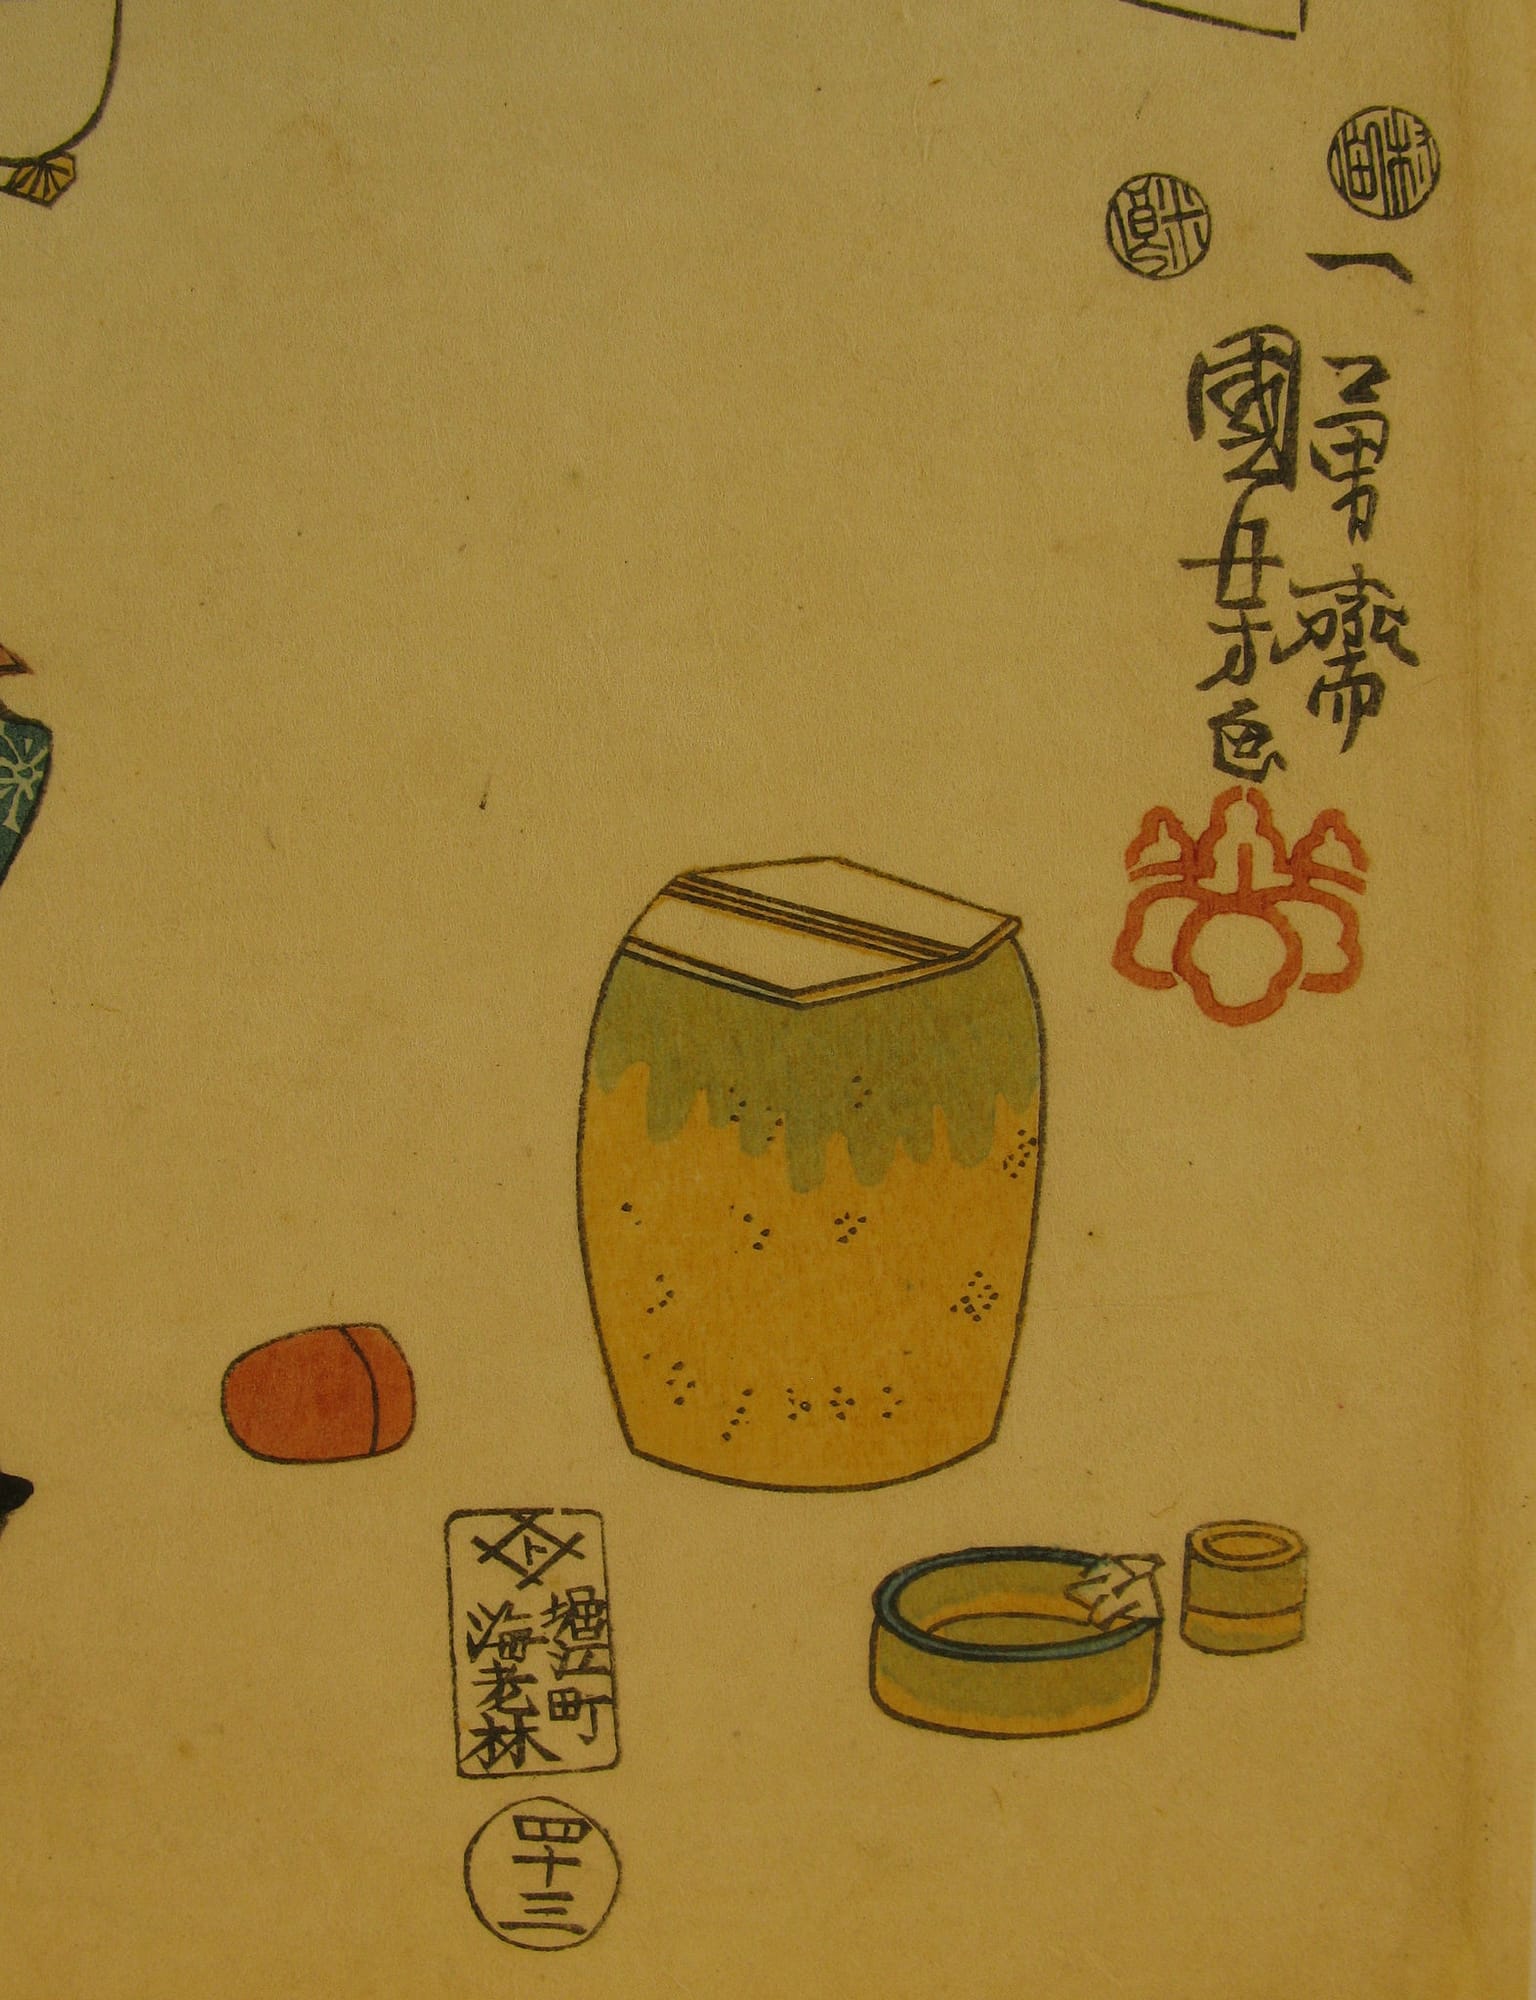 村田
米良
一勇齋
國芳画
ト
堀江町
海老林
四十三